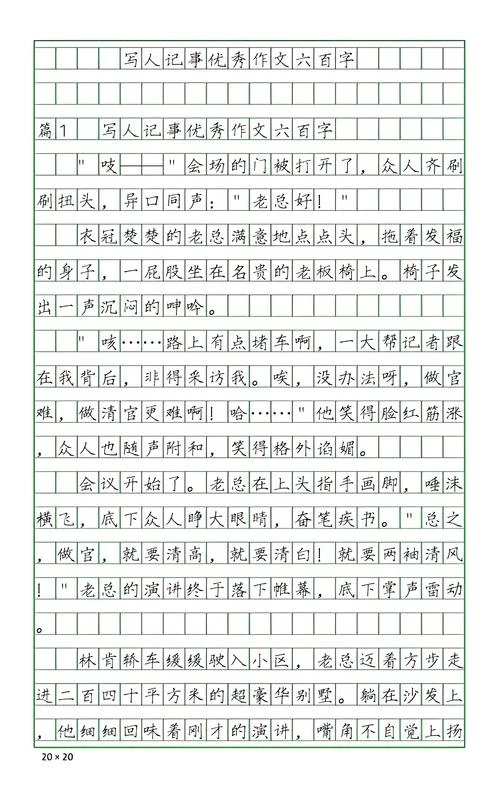 写人记事优秀作文六百字
篇1 写人记事优秀作文六百字
"吱——"会场的门被打开了，众人齐刷
刷扭头，异口同声："老总好！"
衣冠楚楚的老总满意地点点头，拖着发福
的身子，一屁股坐在名贵的老板椅上。椅子发
出一声沉闷的呻吟。
"咳……路上有点堵车啊，一大帮记者跟
在我背后，非得采访我。唉，没办法呀，做官
难，做清官更难啊！哈……"他笑得脸红筋涨
，众人也随声附和，笑得格外谄媚。
会议开始了。老总在上头指手画脚，唾沫
横飞，底下众人睁大眼睛，奋笔疾书。"总之
，做官，就要清高，就要清白！就要两袖清风
！"老总的演讲终于落下帷幕，底下掌声雷动
。
林肯轿车缓缓驶入小区，老总迈着方步走
进二百四十平方米的超豪华别墅。躺在沙发上
，他细细回味着刚才的演讲，嘴角不自觉上扬
20×20